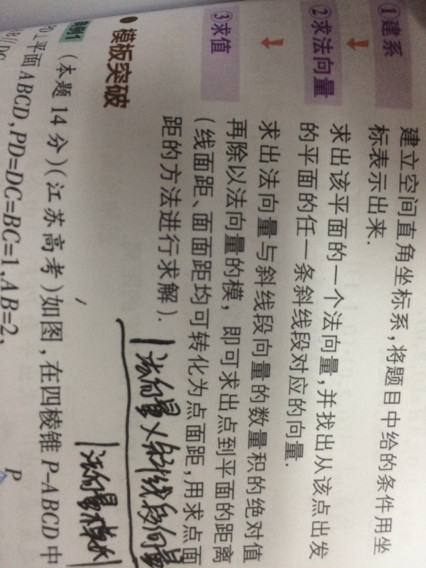 ①建系
建立空间直角坐标系,将题目中给的条件用坐
标表示出来.
②求法向量
求出该平面的一个法向量,并找出从该点出发
的平面的任一条斜线段对应的向量.
③求值
求出法向量与斜线段向量的数量积的绝对值
再除以法向量的模,即可求出点到平面的距离
(线面距、面面距均可转化为点面距,用求点面
距的方法进行求解).
|法向量×斜线段向量
|法向量模长|
模板突破
(本题14分)(江苏高考)如图,在四棱锥P-ABCD中
平面ABCD,PD=DC=BC=1,AB=2,
P